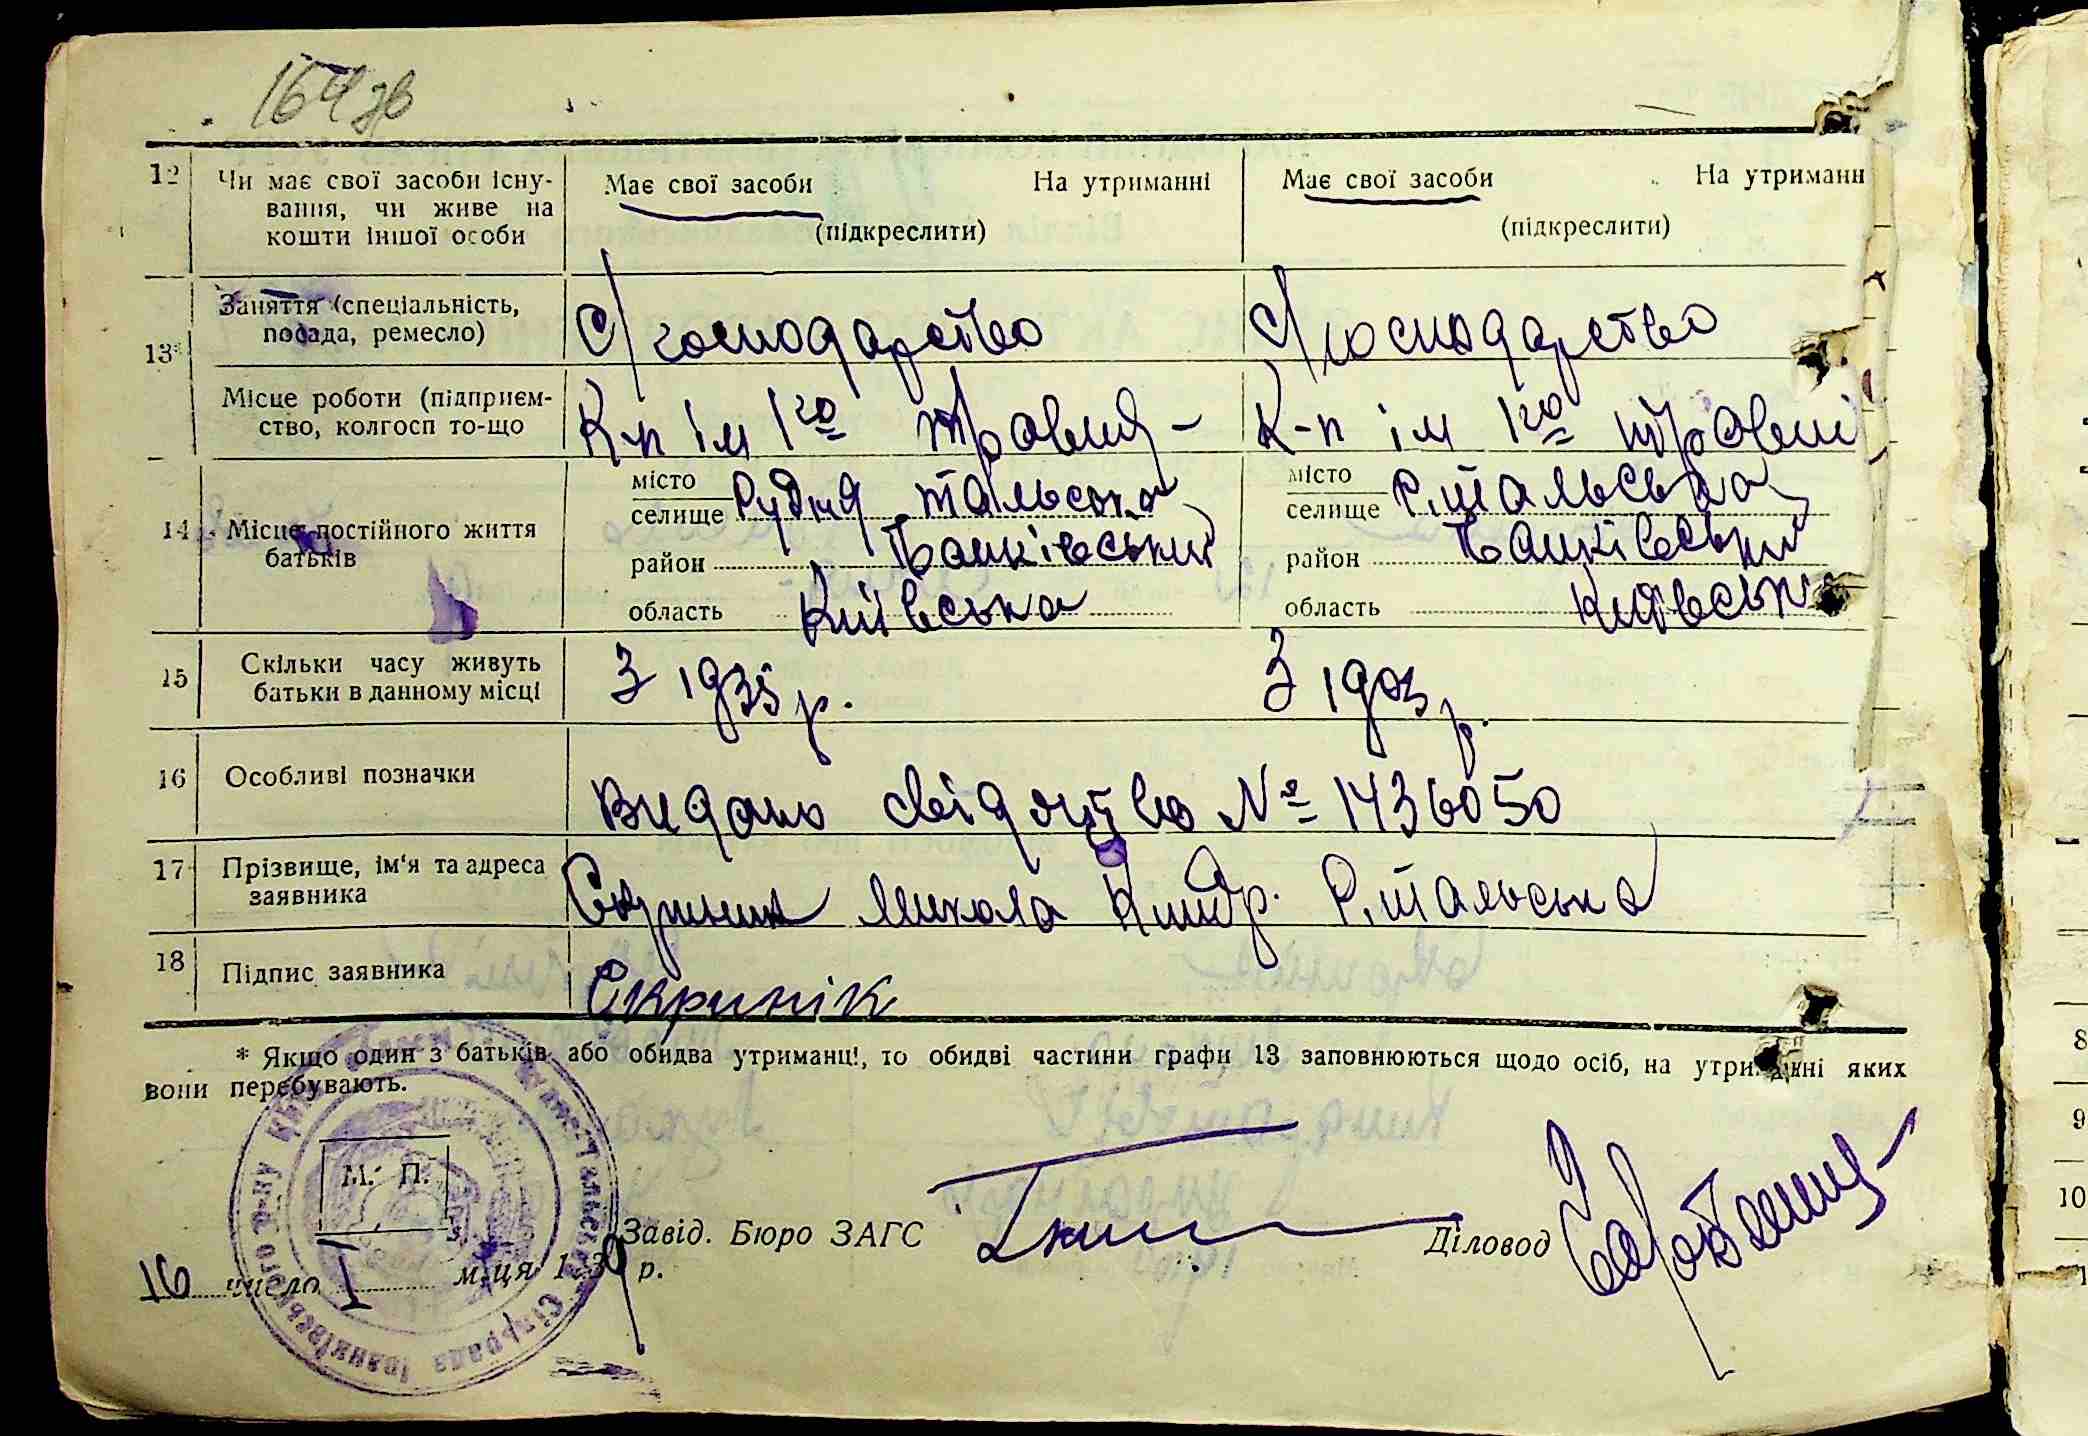 164 зв
12 Чи має свої засоби існу- Має свої засоби На утриманні Має свої засоби На утриманн
вання, чи живе на (підкреслити) (підкреслити)
кошти іншої особи
Заняття (спеціальність, С/господарство С/господарство
посада, ремесло)
13*
Місце роботи (підприєм- К-п ім 1го травня- К-п ім 1го травні
ство, колгосп то-що
місто місто
селище Рудня тальська селище Р.тальська
14 Місце постійного життя
батьків
район Іванківський район Іванківський
область Київська область Київськ
15 Скільки часу живуть З 1935 р. З 1903 р.
батьки в данному місці
16 Особливі позначки Видано свідоцтво № 1436050
17 Прізвище, ім'я та адреса Скриник Микола Р.тальська
заявника
18 Підпис заявника Скринік
* Якщо один з батьків або обидва утриманці, то обидві частини графи 13 заповнюються щодо осіб, на утриманні яких
вони перебувають.
М. П.
Завід. Бюро ЗАГС Діловод
16 число I м-ця 1939 р.
Сільрада Іванківського р-ну
8
9
10